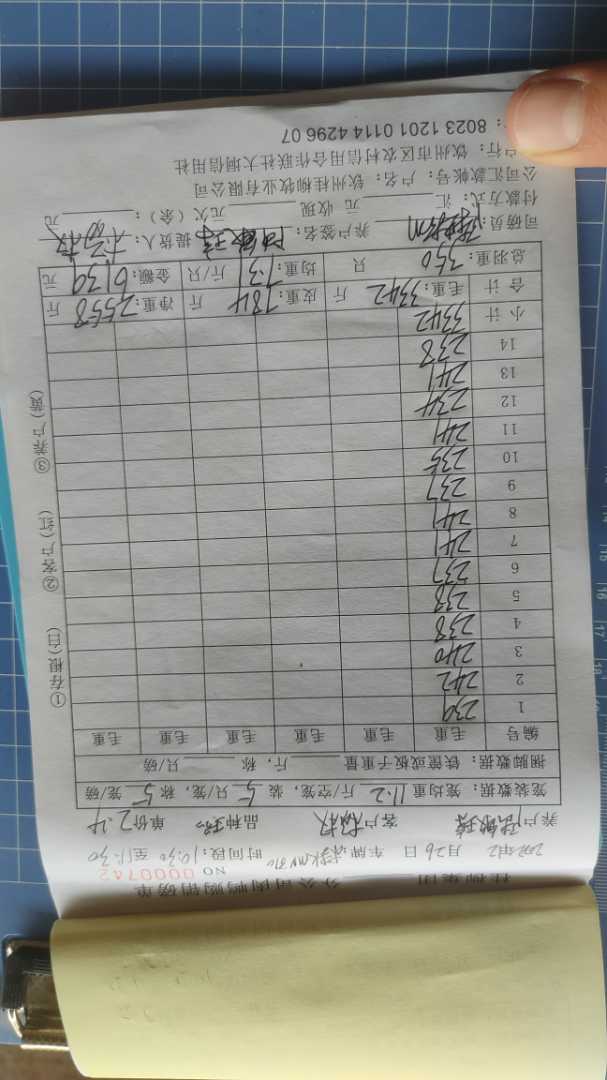 桂柳集团 分公司肉鸭购销磅单
NO 0000742
月26日 车牌 时间段：10:30 至11:30
养户 客户 品种 单价2.4
笼装数据：笼均重11.2斤/空笼，装5只/笼，称5笼/磅
捆脚数据：铁筐或板子重量 斤，称 只/磅
编号 毛重 毛重 毛重 毛重 毛重 毛重
1 239
2 242
3 240
4 238
5 238
6 237
7 241
8 241
9 237
10 235
11 241
12 234
13 241
14 238
小计 3342
合计 毛重：3342 斤 皮重：784 斤 净重：2558 斤
总羽重：350 只 均重：7.31 斤/只 金额：6139 元
司磅员： 养户签名： 提货人：杨权
付款方式：汇 元 收现 元欠（余）： 元
公司汇款帐号：户名：钦州桂柳牧业有限公司
户行：钦州市区农村信用合作联社大垌信用社
：8023 1201 0114 4296 07
①存根(白) ②客户(红) ③养户(黄)